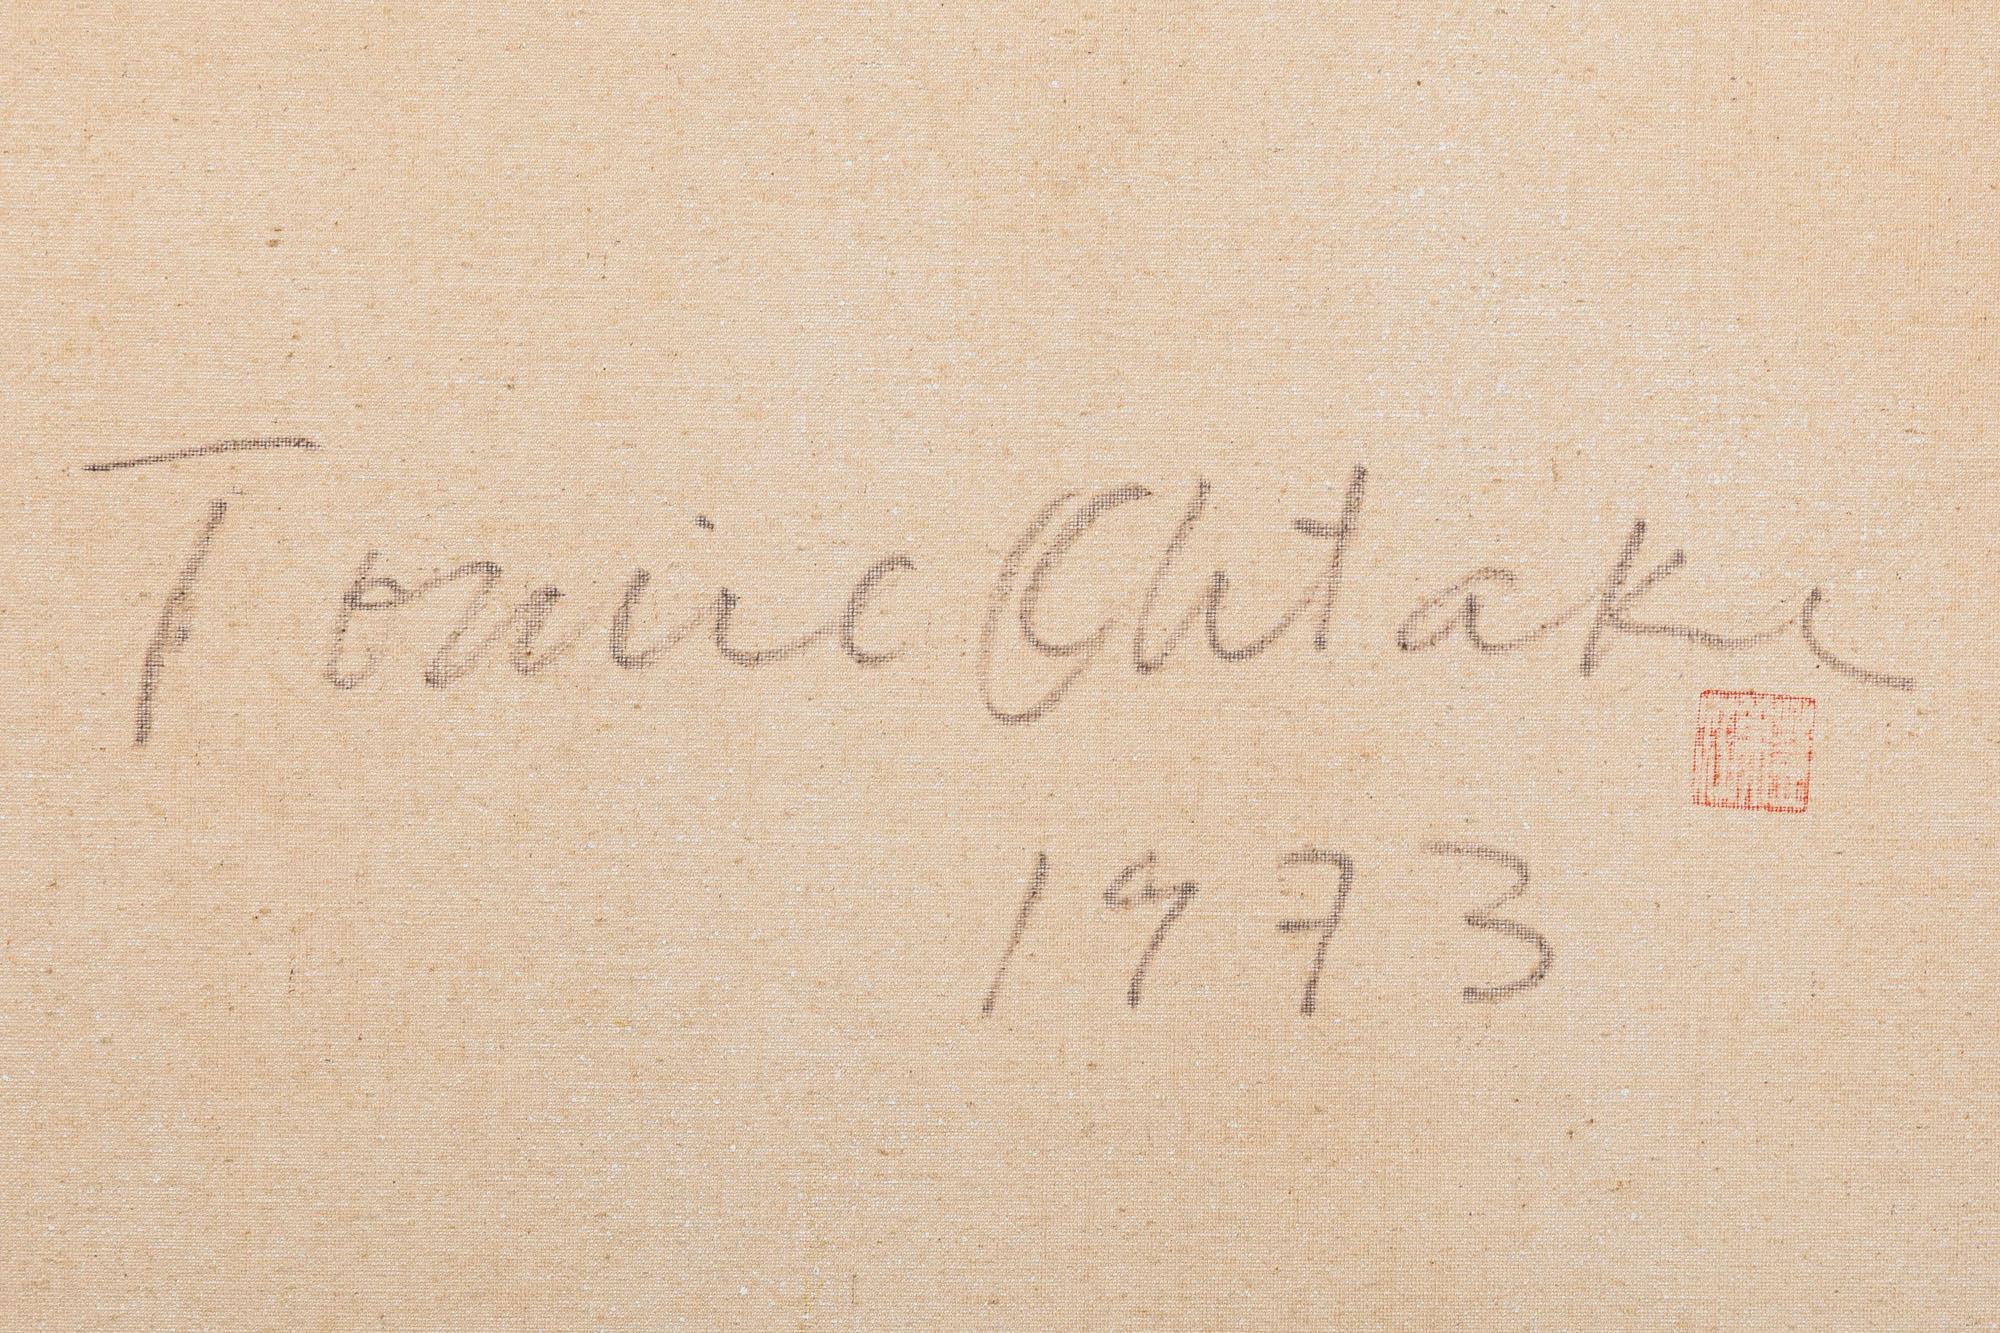 Tomie Ohtake
1973